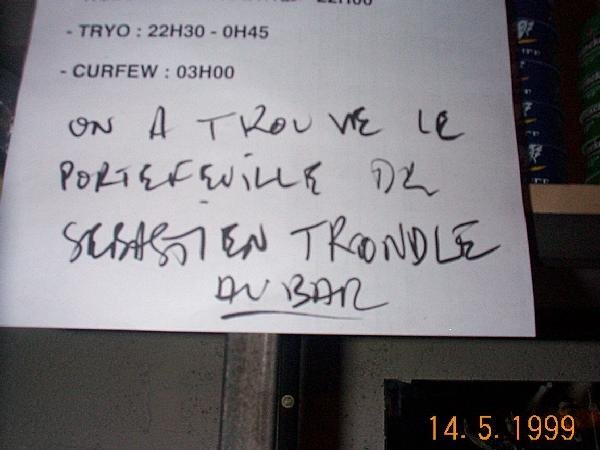 22H00
- TRYO : 22H30 - 0H45
- CURFEW : 03H00
ON A TROUVE LE
PORTEFEUILLE DE
SEBASTIEN TRONDLE
AU BAR
14. 5. 1999